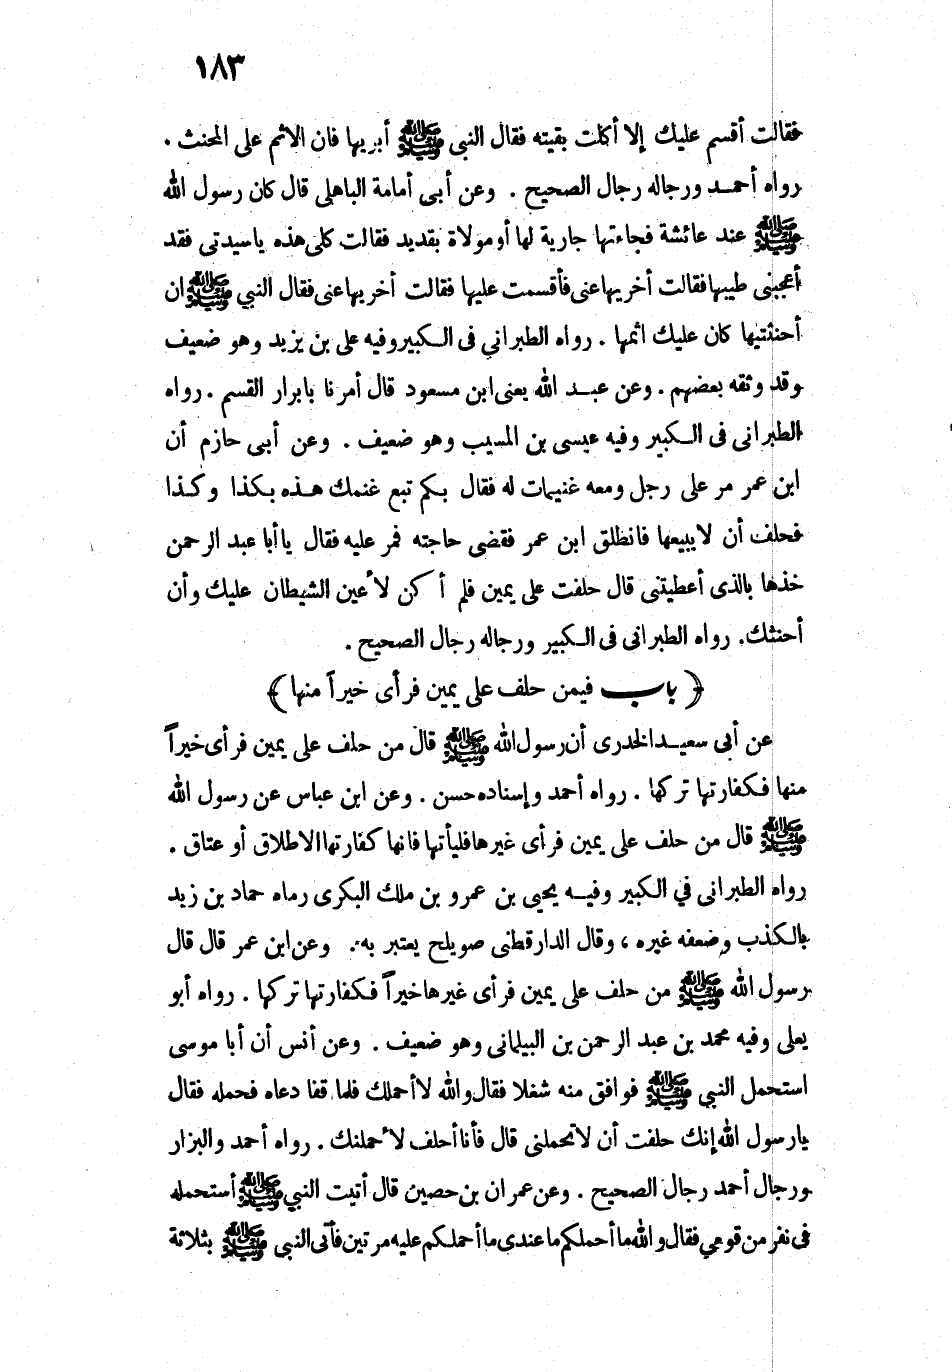 ١٨٣
فقالت أقسم عليك إلا أكلت بقيته فقال النبي ﷺ أبريها فان الاثم على المحنث .
رواه أحمد ورجاله رجال الصحيح . وعن أبى أمامة الباهلى قال كان رسول الله
ﷺ عند عائشة فجاءتها جارية لها أو مولاة بقديد فقالت كلى هذه ياسيدتى فقد
أعجبنى طيبها فقالت أخريها عنى فأقسمت عليها فقالت أخريها عنى فقال النبي ﷺ ان
أحنثتيها كان عليك اثمها . رواه الطبراني فى الكبير وفيه على بن يزيد وهو ضعيف
وقد وثقه بعضهم . وعن عبد الله يعنى ابن مسعود قال أمرنا بابرار القسم . رواه
الطبرانى فى الكبير وفيه عيسى بن المسيب وهو ضعيف . وعن أبى حازم أن
ابن عمر مر على رجل ومعه غنيمات له فقال بكم تبع غنمك هذه بكذا وكذا
فحلف أن لا يبيعها فانطلق ابن عمر فقضى حاجته فمر عليه فقال ياأبا عبد الرحمن
خذها بالذى أعطيتنى قال حلفت على يمين فلم أكن لأعين الشيطان عليك وأن
أحنثك. رواه الطبرانى فى الكبير ورجاله رجال الصحيح .
﴿ باب فيمن حلف على يمين فرأى خيراً منها ﴾
عن أبي سعيد الخدرى أن رسول الله ﷺ قال من حلف على يمين فرأى خيراً
منها فكفارتها تركها . رواه أحمد وإسناده حسن . وعن ابن عباس عن رسول الله
ﷺ قال من حلف على يمين فرأى غيرها فليأتها فانها كفارتها الاطلاق أو عتاق .
رواه الطبرانى في الكبير وفيه يحيى بن عمرو بن ملك البكرى رماه حماد بن زيد
بالكذب وضعفه غيره ، وقال الدارقطنى صويلح يعتبر به . وعن ابن عمر قال قال
رسول الله ﷺ من حلف على يمين فرأى غيرها خيراً فكفارتها تركها . رواه أبو
يعلى وفيه محمد بن عبد الرحمن بن البيلمانى وهو ضعيف . وعن أنس أن أبا موسى
استحمل النبي ﷺ فوافق منه شغلا فقال والله لا أحملك فلما قفا دعاه فحمله فقال
يارسول الله إنك حلفت أن لا تحملنى قال فأنا أحلف لأحملنك . رواه أحمد والبزار
ورجال أحمد رجال الصحيح . وعن عمران بن حصين قال أتيت النبي ﷺ أستحمله
فى نفر من قومي فقال والله ما أحملكم ما عندى ما أحملكم عليه مرتين فأتى النبى ﷺ بثلاثة